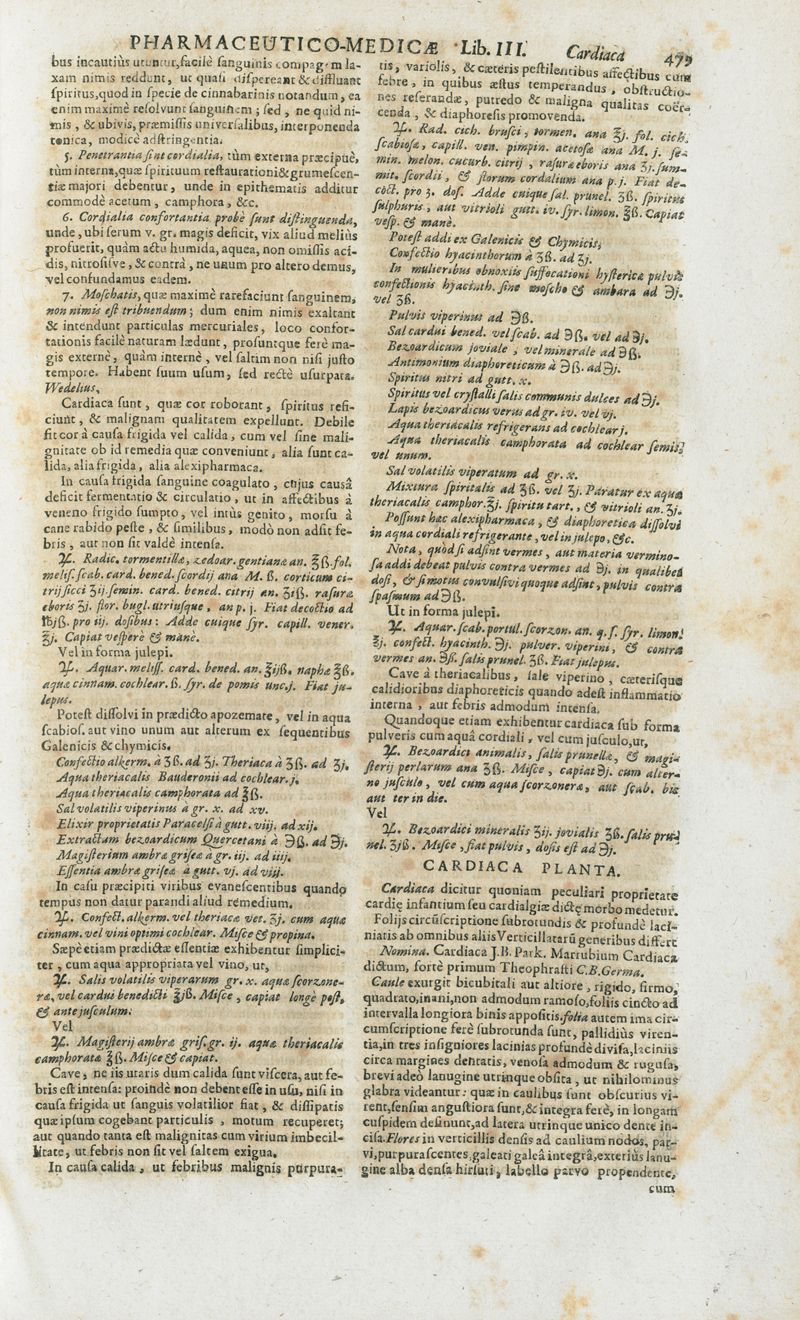 PHARMACEUTICO-MEDICÆ Lib. III. Cardiaca 479
bus incautiùs utuntur, facilè ſanguinis compagem la-
xam nimis reddunt, ut quaſi diſpereant & diffluant
ſpiritus, quod in ſpecie de cinnabarinis notandum, ea
enim maximè reſolvunt ſanguinem; ſed, ne quid ni-
mis, & ubivis, præmiſſis univerſalibus, interponenda
tonica, modicè adſtringentia.
5. Penetrantia ſint cordialia, tùm externa præcipuè,
tùm interna, quæ ſpirituum reſtaurationi & grumeſcen-
tiæ majori debentur, unde in epithematis additur
commodè acetum, camphora, &c.
6. Cordialia confortantia probè ſunt diſtinguenda,
unde, ubi ſerum v. gr. magis deficit, vix aliud meliùs
profuerit, quàm actu humida, aquea, non omiſſis aci-
dis, nitroſiſve, & contrà, ne unum pro altero demus,
vel confundamus eadem.
7. Moſchatis, quæ maximè rarefaciunt ſanguinem,
non nimis eſt tribuendum; dum enim nimis exaltant
& intendunt particulas mercuriales, loco confor-
tationis facilè naturam lædunt, proſuntque ferè ma-
gis externè, quàm internè, vel ſaltim non niſi juſto
tempore. Habent ſuum uſum, ſed rectè uſurpata.
Wedelius.
Cardiaca ſunt, quæ cor roborant, ſpiritus refi-
ciunt, & malignam qualitatem expellunt. Debile
fit cor à cauſa frigida vel calida, cum vel ſine mali-
gnitate ob id remedia quæ conveniunt, alia ſunt ca-
lida, alia frigida, alia alexipharmaca.
In cauſa frigida ſanguine coagulato, cujus causâ
deficit fermentatio & circulatio, ut in affectibus à
veneno frigido ſumpto, vel intùs genito, morſu à
cane rabido peſte, & ſimilibus, modò non adſit fe-
bris, aut non ſit valdè intenſa.
℞. Radic. tormentillæ, zedoar. gentianæ an. ℥ß. fol.
meliſ. ſcab. card. bened. ſcordij ana M. ß. corticum ci-
trij ſicci ʒij. ſemin. card. bened. citrij an. ʒiß. raſuræ
eboris ʒj. flor. bugl. utriuſque, an p. j. Fiat decoctio ad
℔jß. pro iij. doſibus: Adde cuique ſyr. capill. vener.
℥j. Capiat veſperè & manè.
Vel in forma julepi.
℞. Aquar. meliſſ. card. bened. an. ℥ijß. naphæ ℥ß.
aquæ cinnam. cochlear. ß. ſyr. de pomis unc. j. Fiat ju-
lepus.
Poteſt diſſolvi in prædicto apozemate, vel in aqua
ſcabioſ. aut vino unum aut alterum ex ſequentibus
Galenicis & chymicis.
Confectio alkerm. à ʒß. ad ʒj. Theriaca à ʒß. ad ʒj.
Aqua theriacalis Bauderonii ad cochlear. j.
Aqua theriacalis camphorata ad ℥ß.
Sal volatilis viperinus à gr. x. ad xv.
Elixir proprietatis Paracelſi à gutt. viij. ad xij.
Extractum bezoardicum Quercetani à ℈ß. ad ℈j.
Magiſterium ambræ griſeæ à gr. ij. ad iiij.
Eſſentia ambræ griſeæ à gutt. vj. ad viij.
In caſu præcipiti viribus evaneſcentibus quando
tempus non datur parandi aliud remedium.
℞. Confect. alkerm. vel theriacæ vet. ʒj. cum aqua
cinnam. vel vini optimi cochlear. Miſce & propina.
Sæpè etiam prædictæ eſſentiæ exhibentur ſimplici-
ter, cum aqua appropriata vel vino, ut,
℞. Salis volatilis viperarum gr. x. aquæ ſcorzone-
ræ, vel cardui benedicti ℥jß. Miſce, capiat longè poſt,
& ante juſculum:
Vel
℞. Magiſterij ambræ griſ. gr. ij. aquæ theriacalis
camphoratæ ℥ß. Miſce & capiat.
Cave, ne iis utaris dum calida ſunt viſcera, aut fe-
bris eſt intenſa: proindè non debent eſſe in uſu, niſi in
cauſa frigida ut ſanguis volatilior fiat, & diſſipatis
quæ ipſum cogebant particulis, motum recuperet;
aut quando tanta eſt malignitas cum virium imbecil-
litate, ut febris non ſit vel ſaltem exigua.
In cauſa calida, ut febribus malignis purpura-
tis, variolis, & cæteris peſtilentibus affectibus cum
febre, in quibus æſtus temperandus, obſtructio-
nes referandæ, putredo & maligna qualitas coër-
cenda, & diaphoreſis promovenda.
℞. Rad. cich. bruſci, tormen. ana ʒj. fol. cich.
ſcabioſæ, capill. ven. pimpin. acetoſæ ana M. j. ſe-
min. melon. cucurb. citrij, raſuræ eboris ana ʒj. ſum-
mit. ſcordii, & florum cordalium ana p. j. Fiat de-
coct. pro 3. doſ. Adde cuique ſal. prunel. ʒß. ſpiritus
ſulphuris, aut vitrioli gutt. iv. ſyr. limon. ℥ß. Capiat
veſp. & manè.
Poteſt addi ex Galenicis & Chymicis,
Confectio hyacinthorum à ʒß. ad ʒj.
In mulieribus obnoxiis ſuffocationi hyſtericæ pulvis
confectionis hyacinth. ſine moſcho & ambara ad ℈j.
vel ʒß.
Pulvis viperinus ad ℈ß.
Sal cardui bened. vel ſcab. ad ℈ß. vel ad ℈j.
Bezoardicum joviale, vel minerale ad ℈ß.
Antimonium diaphoreticum à ℈ß. ad ℈j.
Spiritus nitri ad gutt. x.
Spiritus vel cryſtalli ſalis communis dulces ad ℈j.
Lapis bezoardicus verus ad gr. iv. vel vj.
Aqua theriacalis refrigerans ad cochlear j.
Aqua theriacalis camphorata ad cochlear ſemiſſ.
vel unum.
Sal volatilis viperatum ad gr. x.
Mixtura ſpiritalis ad ʒß. vel ʒj. Paratur ex aqua
theriacalis camphor. ʒj. ſpiritu tart., & vitrioli an. ʒj.
Poſſunt hæc alexipharmaca, & diaphoretica diſſolvi
in aqua cordiali refrigerante, vel in julepo, &c.
Nota, quòd ſi adſint vermes, aut materia vermino-
ſa addi debeat pulvis contra vermes ad ℈j. in qualibet
doſi, & ſi motus convulſivi quoque adſint, pulvis contra
ſpaſmum ad ℈ß.
Ut in forma julepi.
℞. Aquar. ſcab. portul. ſcorzon. an. q. ſ. ſyr. limon.
℥j. confect. hyacinth. ℈j. pulver. viperini, & contra
vermes an. ℈ſſ. ſalis prunel. ʒß. Fiat julepus.
Cave à theriacalibus, ſale viperino, cæteriſque
calidioribus diaphoreticis quando adeſt inflammatio
interna, aut febris admodum intenſa.
Quandoque etiam exhibentur cardiaca ſub forma
pulveris cum aquâ cordiali, vel cum juſculo, ut,
℞. Bezoardici animalis, ſalis prunellæ, & magi-
ſterij perlarum ana ʒß. Miſce, capiat ℈j. cum alter-
no juſculo, vel cum aqua ſcorzoneræ, aut ſcab. bis
aut ter in die.
Vel
℞. Bezoardici mineralis ʒij. jovialis ʒß. ſalis pru-
nel. ʒjß. Miſce, fiat pulvis, doſis eſt ad ℈j.
CARDIACA PLANTA.
Cardiaca dicitur quoniam peculiari proprietate
cardię infantium ſeu cardialgiæ dictę morbo medetur.
Folijs circũſcriptione ſubrotundis & profundè laci-
niatis ab omnibus aliis Verticillatarũ generibus differt
Nomina. Cardiaca J.B. Park. Marrubium Cardiaca
dictum, fortè primum Theophraſti C.B. Germa.
Caule exurgit bicubitali aut altiore, rigido, firmo,
quadrato, inani, non admodum ramoſo, foliis cincto ad
intervalla longiora binis appoſitis. folia autem ima cir-
cumſcriptione ferè ſubrotunda ſunt, pallidiùs viren-
tia, in tres inſigniores lacinias profundè diviſa, laciniis
circa margines dentatis, venoſa admodum & rugoſa,
brevi adeò lanugine utrinque obſita, ut nihilominus
glabra videantur: quæ in caulibus ſunt obſcurius vi-
rent, ſenſim anguſtiora ſunt, & integra ferè, in longam
cuſpidem deſinunt, ad latera utrinque unico dente in-
ciſa. Flores in verticillis denſis ad caulium nodos, par-
vi, purpuraſcentes, galeati galeâ integrâ, exteriùs lanu-
gine alba denſa hirſuti, labello parvo propendente,
cum